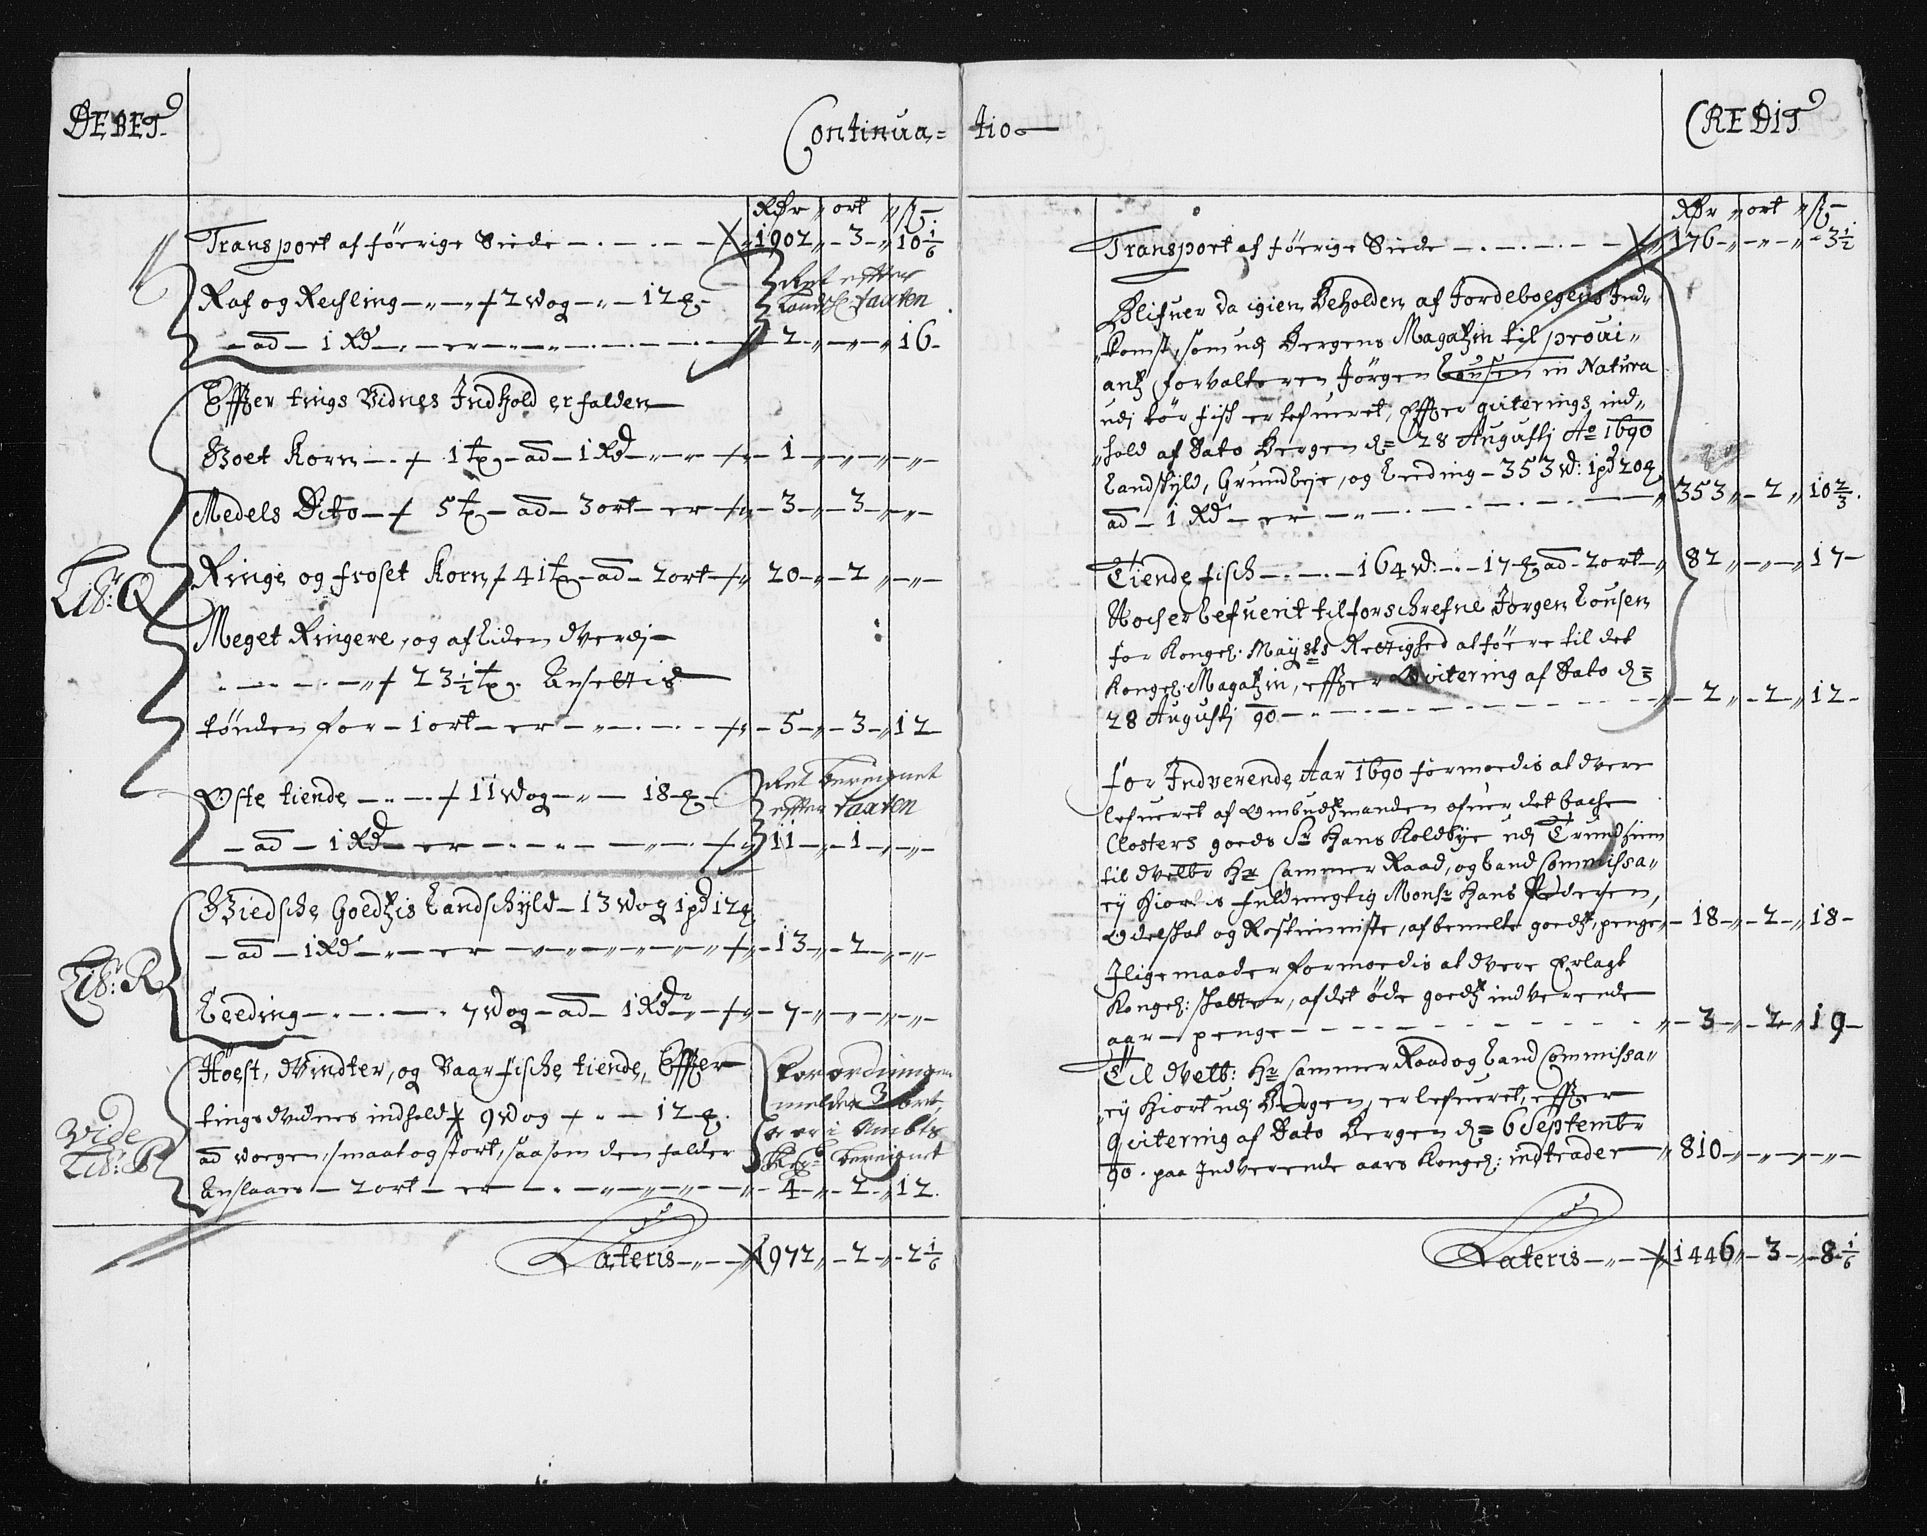 DEBET.
Continua=
Rdr " ort " ß
Transport af föerige Siede — 1902 " - 3 - " 10 1/6
Raf og Rechling — " — 2 Wog — " — 12 ℔ —
Ret effter
Landsch: taxten
— ad — 1 Rd — er — 2 — " — " — 16 —
Effter tings Vidnes Indhold er falden
Boet Korn — 1 tø — ad — 1 Rd — 1 — " — " —
Medels Dito — 5 tø — ad — 3 ort — er — 3 — " — 3 — " —
Litr: Q
Ringe og froset Korn 41 tø — ad — 2 ort — 20 — " — 2 " — " —
Meget Ringere, og af liden Werdj —
23 1/2 tø. Ansettis
tønden for — 1 ort — er — 5 — " — 3 — " 12
Oste tiende — 11 Wog — " — 18 ℔ —
Ret beregnet
effter taxten
— ad — 1 Rd — er — 11 — " — 1 — " —
Giedsche Goedtzis Landschÿld — 13 Wog 1 pd 12 ℔
— ad — 1 Rd — " — er — 13 — " — 2 — " —
Litr: R
Leeding — 7 Wog — ad — 1 Rd — 7 — " — " —
Höest, Windter, og Vaar fische tiende, Effter
tings Widnes indhold 9 Wog — " — 12 ℔.
ad Wogen, smaat og stort, saasom den falder
Anslaaes — 2 ort — er — 4 — " — 2 — " 12.
forordningen
melder 3 ort,
er i Ambts
beregnet
Vide
Litr: P
Lateris — " — 1972 " — 2 — " — 2 1/6
tio —
CREDIT
Rdr " ort " ß
Transport af föerige Siede — 176 — " — " — " — 3 1/2
Blifuer da igien Beholden af Jordeboegens Ind-
komst, som udj Bergens Magatzin til provi-
antz forvalteren Jörgen Lousen in Natura
udj tör fisk er lefueret, Effter qviterings ind-
hold af Dato Bergen d= 28 Augustj Ao 1690
Landskÿld, Grundleje, og Leeding — 353 W: 1 pd 20 ℔
ad — 1 Rd — er — 353 " — 2 " 10 2/3.
Tiende fisch — 164 W: — 17 ℔ ad — 2 ort — 82 " — " — 17 —
Noch er lefuerit til forschrefne Jörgen Lousen
for Kongel: Maysts Rettighed at föere til det
Kongel: Magatzin, effter Qvitering af Dato d=
28 Augustj 90 — 2 — " — 2 — " 12 —
for Indverende Aar 1690 formoedis at Were
lefueret af Ombudtzmanden ofuer det bache
Closters goeds Sr Hans Koldbÿe udj Trundhiem
til Welbr Hr Cammer Raad, og Land Commissa-
rij Hiortis fuldmegtig Monsr Hans Pedersen,
Odelskat og Rostieniste, af bemelte goedtz, penge — 18 — " — 2 — " 18 —
Ilige maader formoedis at Were Erlagt
Kongel: skatter, af det öde goedtz indverende
aar — penge — 3 — " — 2 — " 19 —
Til Welb: Hr Cammer Raad og Land Commissa-
rij Hiort udj Bergen, er lefueret, effter
Qvitering af Dato Bergen d= 6 Septembr
90. paa Indverende aars Kongel: indtrader " 810 — " — " — " —
Lateris — " — 1446 " — 3 — " — 8 1/6